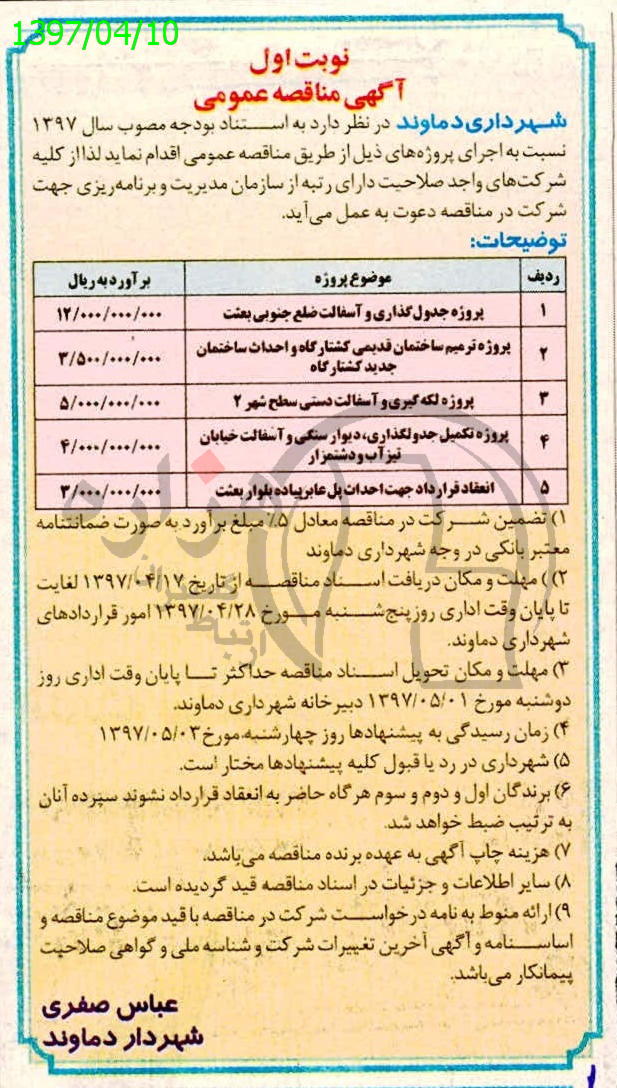 1397/04/10
نوبت اول
آگهی مناقصه عمومی
شهرداری دماوند در نظر دارد به استناد بودجه مصوب سال ۱۳۹۷
نسبت به اجرای پروژه‌های ذیل از طریق مناقصه عمومی اقدام نماید لذا از کلیه
شرکت‌های واجد صلاحیت دارای رتبه از سازمان مدیریت و برنامه‌ریزی جهت
شرکت در مناقصه دعوت به عمل می‌آید.
توضیحات:
ردیف موضوع پروژه برآورد به ریال
۱ پروژه جدول گذاری و آسفالت ضلع جنوبی بعثت ۱۲/۰۰۰/۰۰۰/۰۰۰
۲ پروژه ترمیم ساختمان قدیمی کشتارگاه و احداث ساختمان
جدید کشتارگاه ۳/۵۰۰/۰۰۰/۰۰۰
۳ پروژه لکه گیری و آسفالت دستی سطح شهر ۲ ۵/۰۰۰/۰۰۰/۰۰۰
۴ پروژه تکمیل جدولگذاری، دیوار سنگی و آسفالت خیابان
تیزآب و دشتمزار ۴/۰۰۰/۰۰۰/۰۰۰
۵ انعقاد قرارداد جهت احداث پل عابر پیاده بلوار بعثت ۳/۰۰۰/۰۰۰/۰۰۰
۱) تضمین شرکت در مناقصه معادل ۵٪ مبلغ برآورد به صورت ضمانتنامه
معتبر بانکی در وجه شهرداری دماوند
۲) مهلت و مکان دریافت اسناد مناقصه از تاریخ ۱۳۹۷/۰۴/۱۷ لغایت
تا پایان وقت اداری روز پنج‌شنبه مورخ ۱۳۹۷/۰۴/۲۸ امور قراردادهای
شهرداری دماوند.
۳) مهلت و مکان تحویل اسناد مناقصه حداکثر تا پایان وقت اداری روز
دوشنبه مورخ ۱۳۹۷/۰۵/۰۱ دبیرخانه شهرداری دماوند.
۴) زمان رسیدگی به پیشنهادها روز چهارشنبه مورخ ۱۳۹۷/۰۵/۰۳
۵) شهرداری در رد یا قبول کلیه پیشنهادها مختار است.
۶) برندگان اول و دوم و سوم هرگاه حاضر به انعقاد قرارداد نشوند سپرده آنان
به ترتیب ضبط خواهد شد.
۷) هزینه چاپ آگهی به عهده برنده مناقصه می‌باشد.
۸) سایر اطلاعات و جزئیات در اسناد مناقصه قید گردیده است.
۹) ارائه منوط به نامه درخواست شرکت در مناقصه با قید موضوع مناقصه و
اساسنامه و آگهی آخرین تغییرات شرکت و شناسه ملی و گواهی صلاحیت
پیمانکار می‌باشد.
عباس صفری
شهردار دماوند